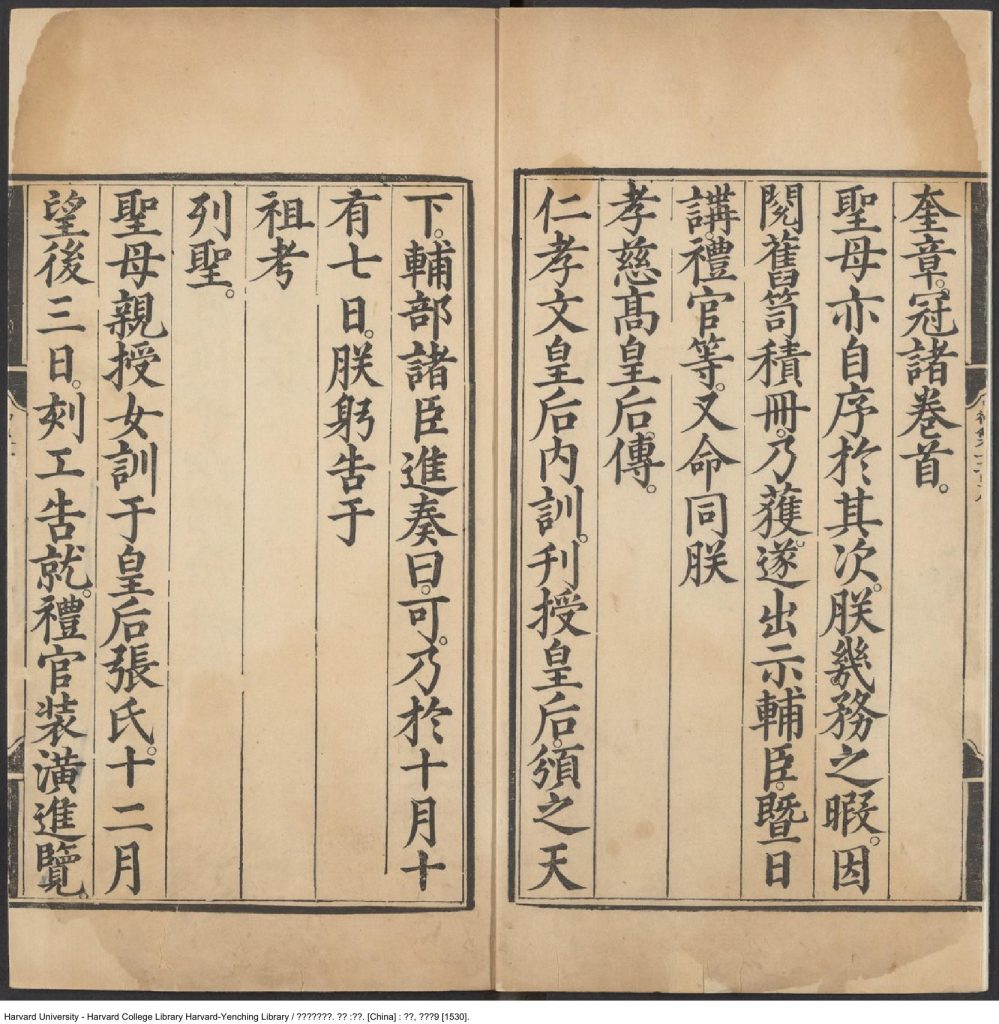 奎章。冠諸卷首。
聖母亦自序於其次。朕幾務之暇。因
閱舊笥積冊。乃獲。遂出示輔臣。曁日
講禮官等。又命同朕
孝慈髙皇后傳。
仁孝文皇后内訓。刋授皇后。頒之天
下。輔部諸臣進奏曰。可。乃於十月十
有七日。朕躬告于
祖考
列聖。
聖母親授女訓于皇后張氏。十二月
望後三日。刻工告就。禮官装潢進覽。
Harvard University - Harvard College Library Harvard-Yenching Library / ???????. ?? :??. [China] : ??, ???9 [1530].